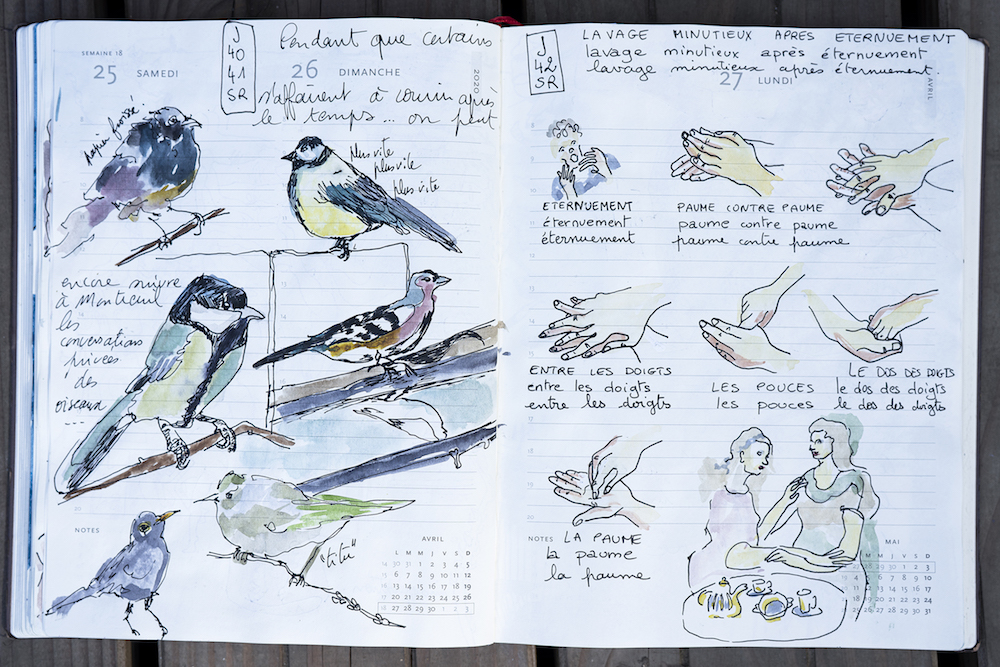 SEMAINE 18
25 SAMEDI
J
40
41
SR
26 DIMANCHE
2020
Pendant que certains
s'affairent à courir après
le temps... on peut
papier froissé!
plus vite
plus vite
plus vite
encore suivre
à Montreuil
les
conversations
privées
des
oiseaux
...
"titu"
NOTES
AVRIL
L M M J V S D
14 30 31 1 2 3 4 5
15 6 7 8 9 10 11 12
16 13 14 15 16 17 18 19
17 20 21 22 23 24 25 26
18 27 28 29 30 1 2 3
J
42
SR
LAVAGE MINUTIEUX APRES ETERNUEMENT
lavage minutieux après éternuement
lavage minutieux après éternuement.
27 LUNDI
AVRIL
ETERNUEMENT
éternuement
éternuement
PAUME CONTRE PAUME
paume contre paume
paume contre paume
ENTRE LES DOIGTS
entre les doigts
entre les doigts
LES POUCES
les pouces
LE DOS DES DOIGTS
le dos des doigts
le dos des doigts
NOTES
LA PAUME
la paume
la paume
MAI